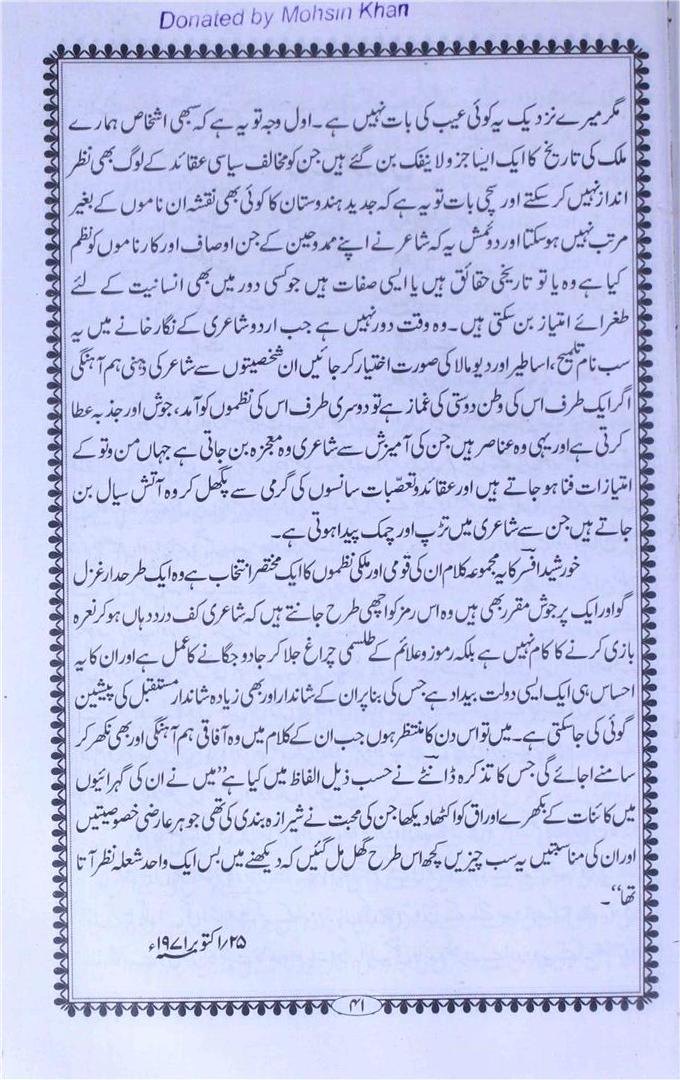 Donated by Mohsin Khan
مگر میرے نزدیک یہ کوئی عیب کی بات نہیں ہے۔ اول وجہ تو یہ ہے کہ سبھی اشخاص ہمارے
ملک کی تاریخ کا ایک ایسا جزو لاینفک بن گئے ہیں جن کو مخالف سیاسی عقائد کے لوگ بھی نظر
انداز نہیں کر سکتے اور سچی بات تو یہ ہے کہ جدید ہندوستان کا کوئی بھی نقشہ ان ناموں کے بغیر
مرتب نہیں ہو سکتا اور دوئمش یہ کہ شاعر نے اپنے ممدوحین کے جن اوصاف اور کارناموں کو نظم
کیا ہے وہ یا تو تاریخی حقائق ہیں یا ایسی صفات ہیں جو کسی دور میں بھی انسانیت کے لئے
طغرائے امتیاز بن سکتی ہیں۔ وہ وقت دور نہیں ہے جب اردو شاعری کے نگار خانے میں یہ
سب نام تلمیح، اساطیر اور دیو مالا کی صورت اختیار کر جائیں ان شخصیتوں سے شاعر کی ذہنی ہم آہنگی
اگر ایک طرف اس کی وطن دوستی کی غماز ہے تو دوسری طرف اس کی نظموں کو آمد، جوش اور جذبہ عطا
کرتی ہے اور یہی وہ عناصر ہیں جن کی آمیزش سے شاعری وہ معجزہ بن جاتی ہے جہاں من و تو کے
امتیازات فنا ہو جاتے ہیں اور عقائد و تعصّبات سانسوں کی گرمی سے پگھل کر وہ آتش سیال بن
جاتے ہیں جن سے شاعری میں تڑپ اور چمک پیدا ہوتی ہے۔
خورشید افسرؔ کا یہ مجموعہ کلام ان کی قومی اور ملکی نظموں کا ایک مختصر انتخاب ہے وہ ایک طرحدار غزل
گو اور ایک پر جوش مقرر بھی ہیں وہ اس رمز کو اچھی طرح جانتے ہیں کہ شاعری کف درد دہاں ہو کر نعرہ
بازی کرنے کا کام نہیں ہے بلکہ رموز و علائم کے طلسمی چراغ جلا کر جادو جگانے کا عمل ہے اور ان کا یہ
احساس ہی ایک ایسی دولت بیداد ہے جس کی بنا پر ان کے شاندار اور بھی زیادہ شاندار مستقبل کی پیشین
گوئی کی جاسکتی ہے۔ میں تو اس دن کا منتظر ہوں جب ان کے کلام میں وہ آفاقی ہم آہنگی اور بھی نکھر کر
سامنے اجائے گی جس کا تذکرہ ڈانٹے نے حسب ذیل الفاظ میں کیا ہے ”میں نے ان کی گہرائیوں
میں کائنات کے بکھرے اوراق کو اکٹھا دیکھا جن کی محبت نے شیرازہ بندی کی تھی جوہر عارضی خصوصیتیں
اور ان کی مناسبتیں یہ سب چیزیں کچھ اس طرح گھل مل گئیں کہ دیکھنے میں بس ایک واحد شعلہ نظر آتا
تھا“۔
۲۵/اکتوبر ۱۹۷۱ء
۴۱